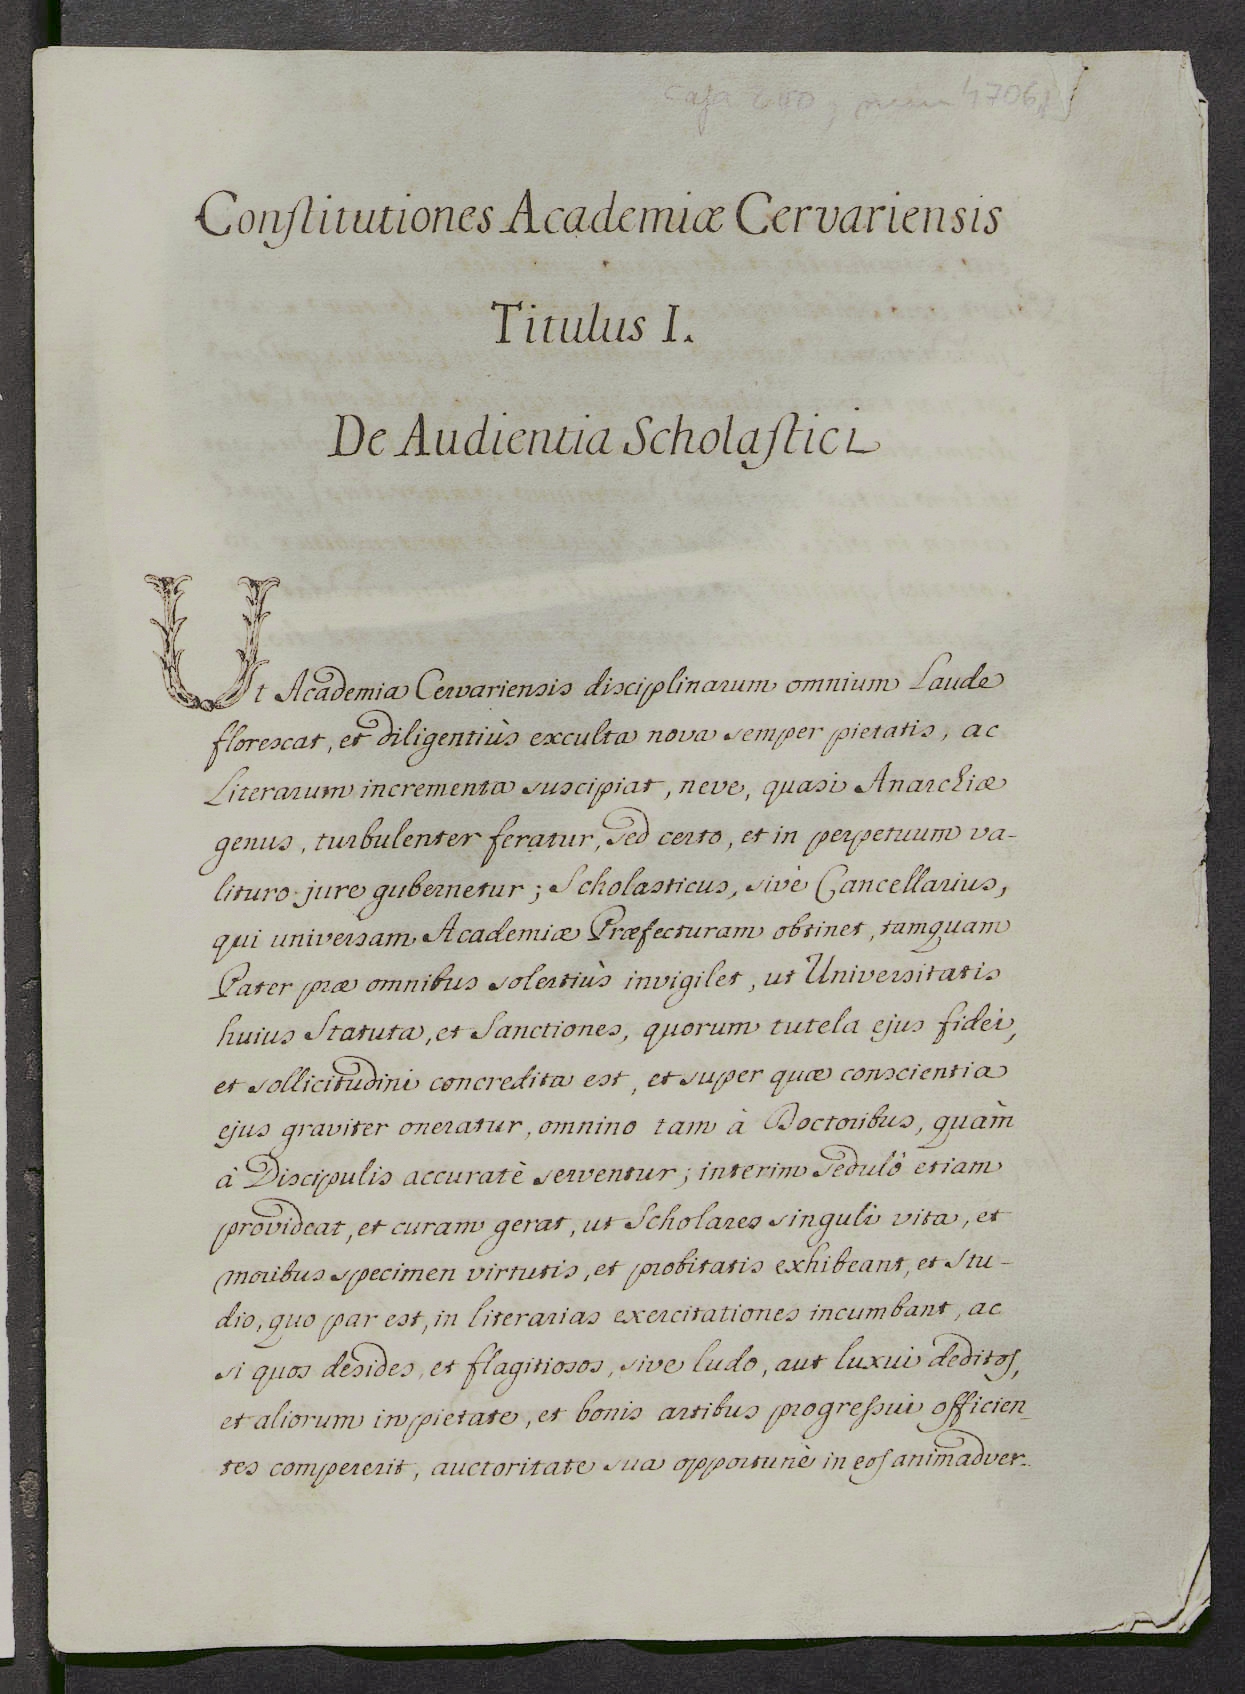 Conſtitutiones Academiæ Cervariensis
Titulus I.
De Audientia Scholaſtici
Ut Academia Cervariensis disciplinarum omnium Laude
florescat, et diligentiùs exculta nova semper pietatis, ac
Literarum incrementa suscipiat, neve, quasi Anarchiæ
genus, turbulenter feratur, sed certo, et in perpetuum va-
lituro jure gubernetur; Scholasticus, sivè Cancellarius,
qui universam Academiæ Præfecturam obtinet, tamquam
Pater præ omnibus solertiùs invigilet, ut Universitatis
huius Statuta, et Sanctiones, quorum tutela ejus fidei,
et sollicitudini concredita est, et super quæ conscientia
ejus graviter oneratur, omnino tam à Doctoribus, quàm
à Discipulis accuratè serventur; interim sedulò etiam
provideat, et curam gerat, ut Scholares singuli vita, et
moribus specimen virtutis, et probitatis exhibeant, et Stu-
dio, quo par est, in literarias exercitationes incumbant, ac
si quos desides, et flagitiosos, sive ludo, aut luxui deditoſ,
et aliorum in pietate, et bonis artibus progreſsui officien-
tes compererit, auctoritate sua opportunè in eoſ animadver-